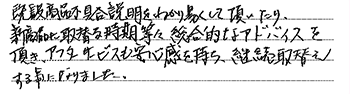 既設商品不具合説明をわかり易くして頂いたり、
新商品に取替る時期等々総合的なアドバイスを
頂き、アフターサービスも安心感を持ち、継続取替えﾉ
する事になりました。